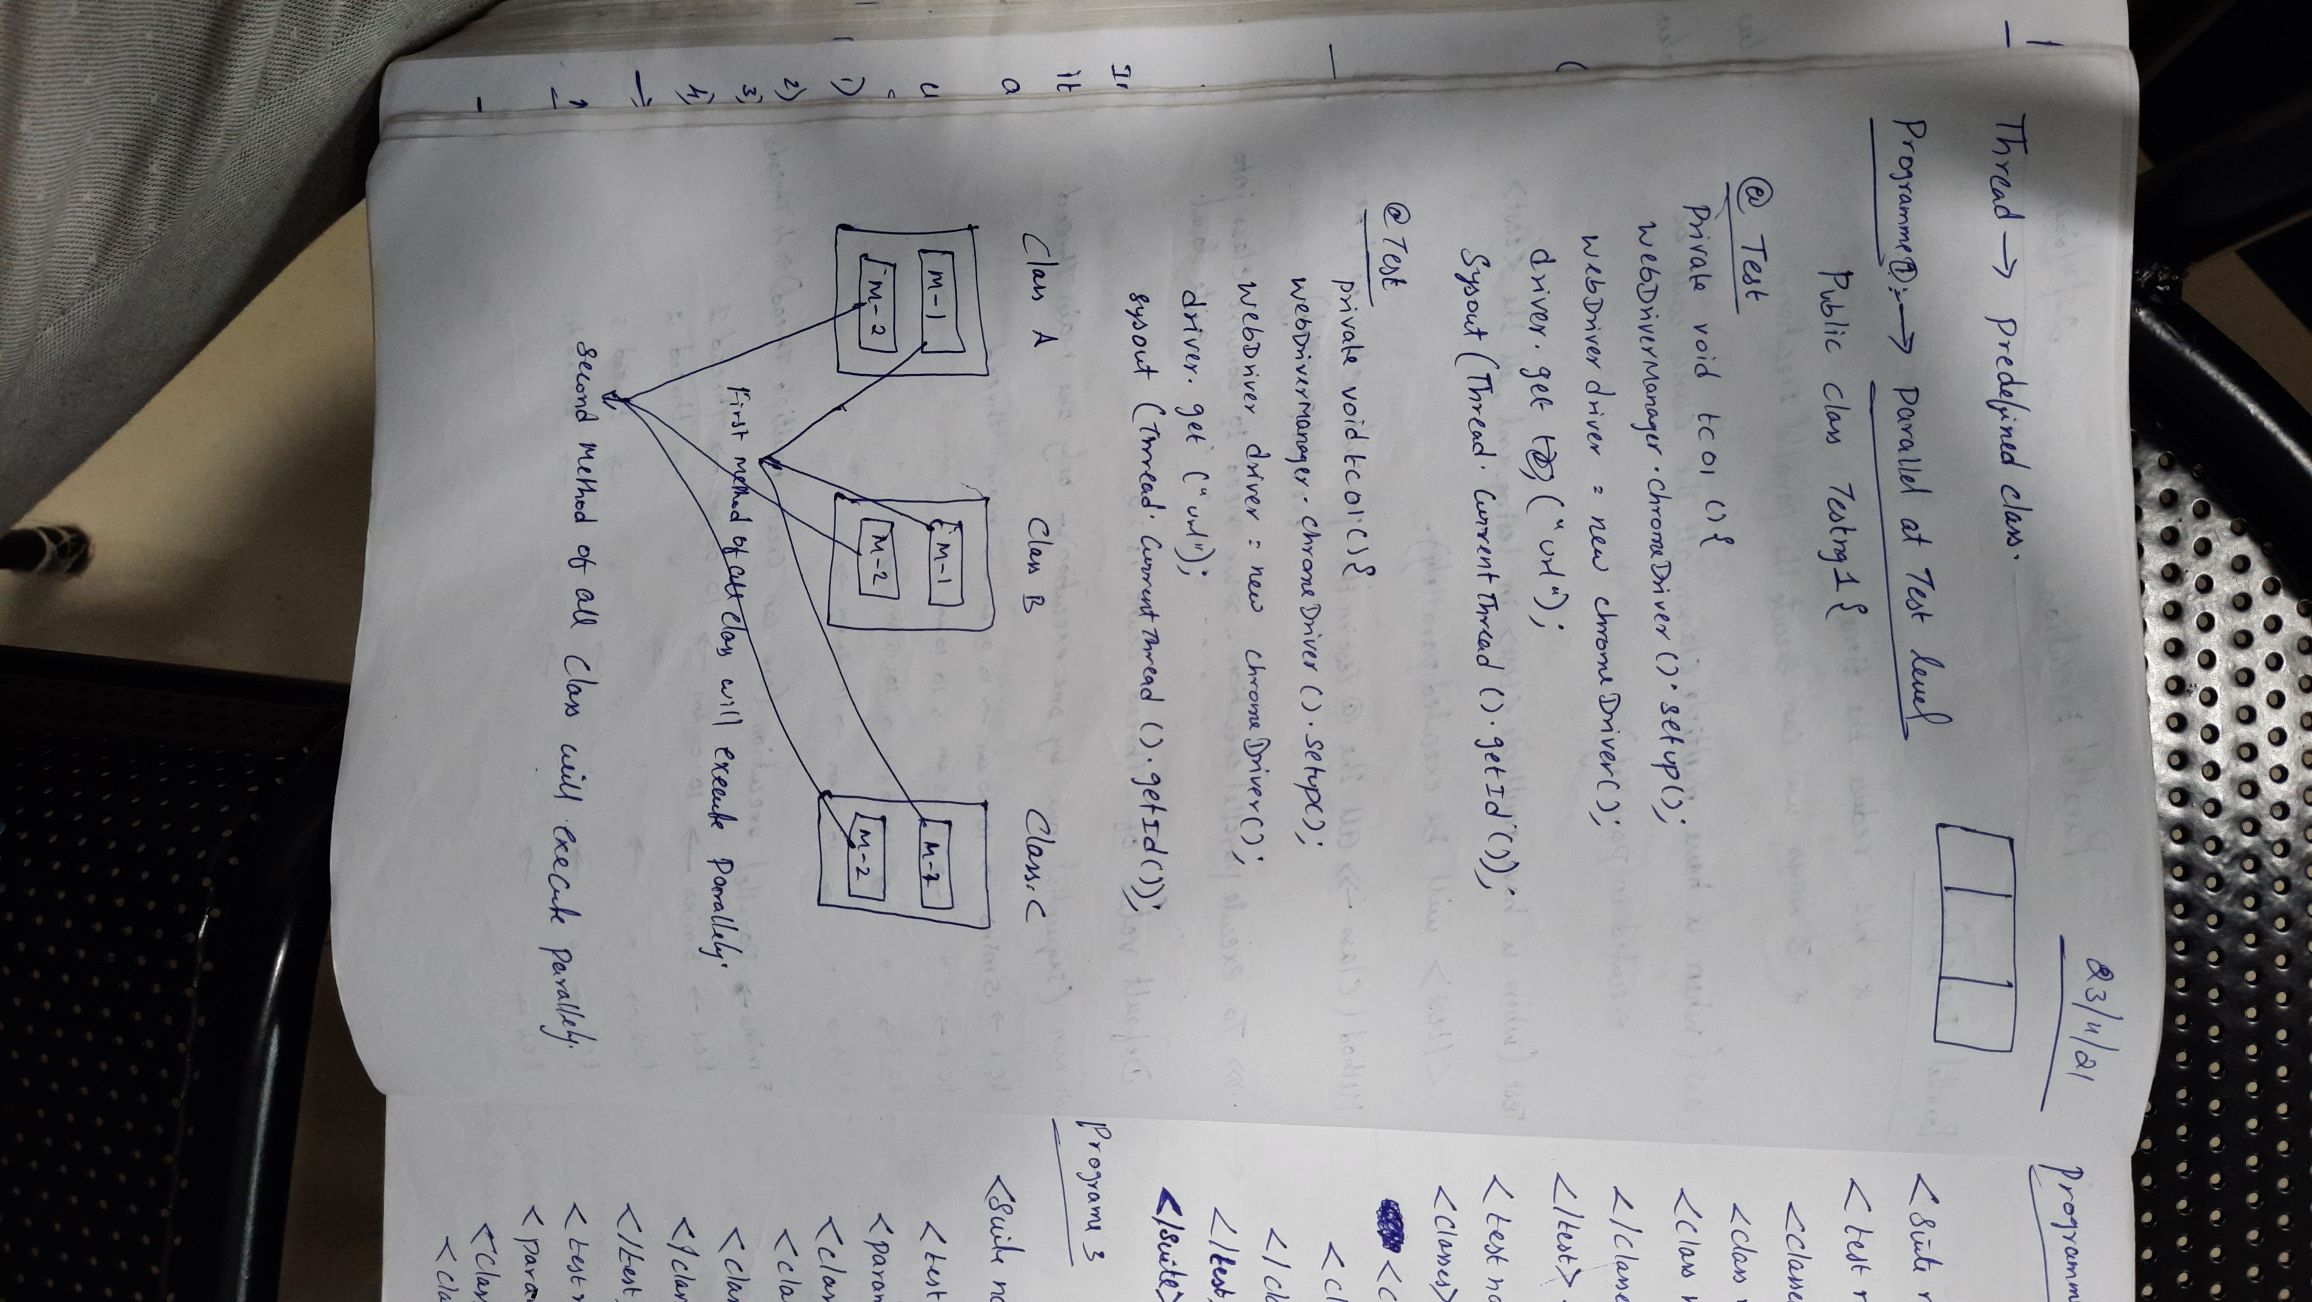 23/4/21
Thread → Predefined class.
Programme ①:→ Parallel at Test level
Public class Testng1{
@Test
Private void tc01 (){
WebDriverManager.chromeDriver().setup();
WebDriver driver = new chromeDriver();
driver.get ("url");
Sysout (Thread.currentThread ().getId());
@Test
private void tc01(){
WebDriverManager.chromeDriver().setup();
WebDriver driver = new chromeDriver();
driver.get ("url");
sysout (Thread.currentThread ().getId());
Class A Class B Class.C
M-1 M-1 M-1
M-2 M-2 M-2
First method of all class will execute Parallely.
second method of all Class will execute parallely.
It
a
1)
2)
3)
4)
Programm
<Suite
<test
<classe
<class
<class
</classe
</test>
<test
<classes>
<c
<cl
</cl
</test
</suite>
Programe 3
<Suite
<test
<param
<clas
<cla
<clas
</clas
</test
<test
<para
<clas
<cla